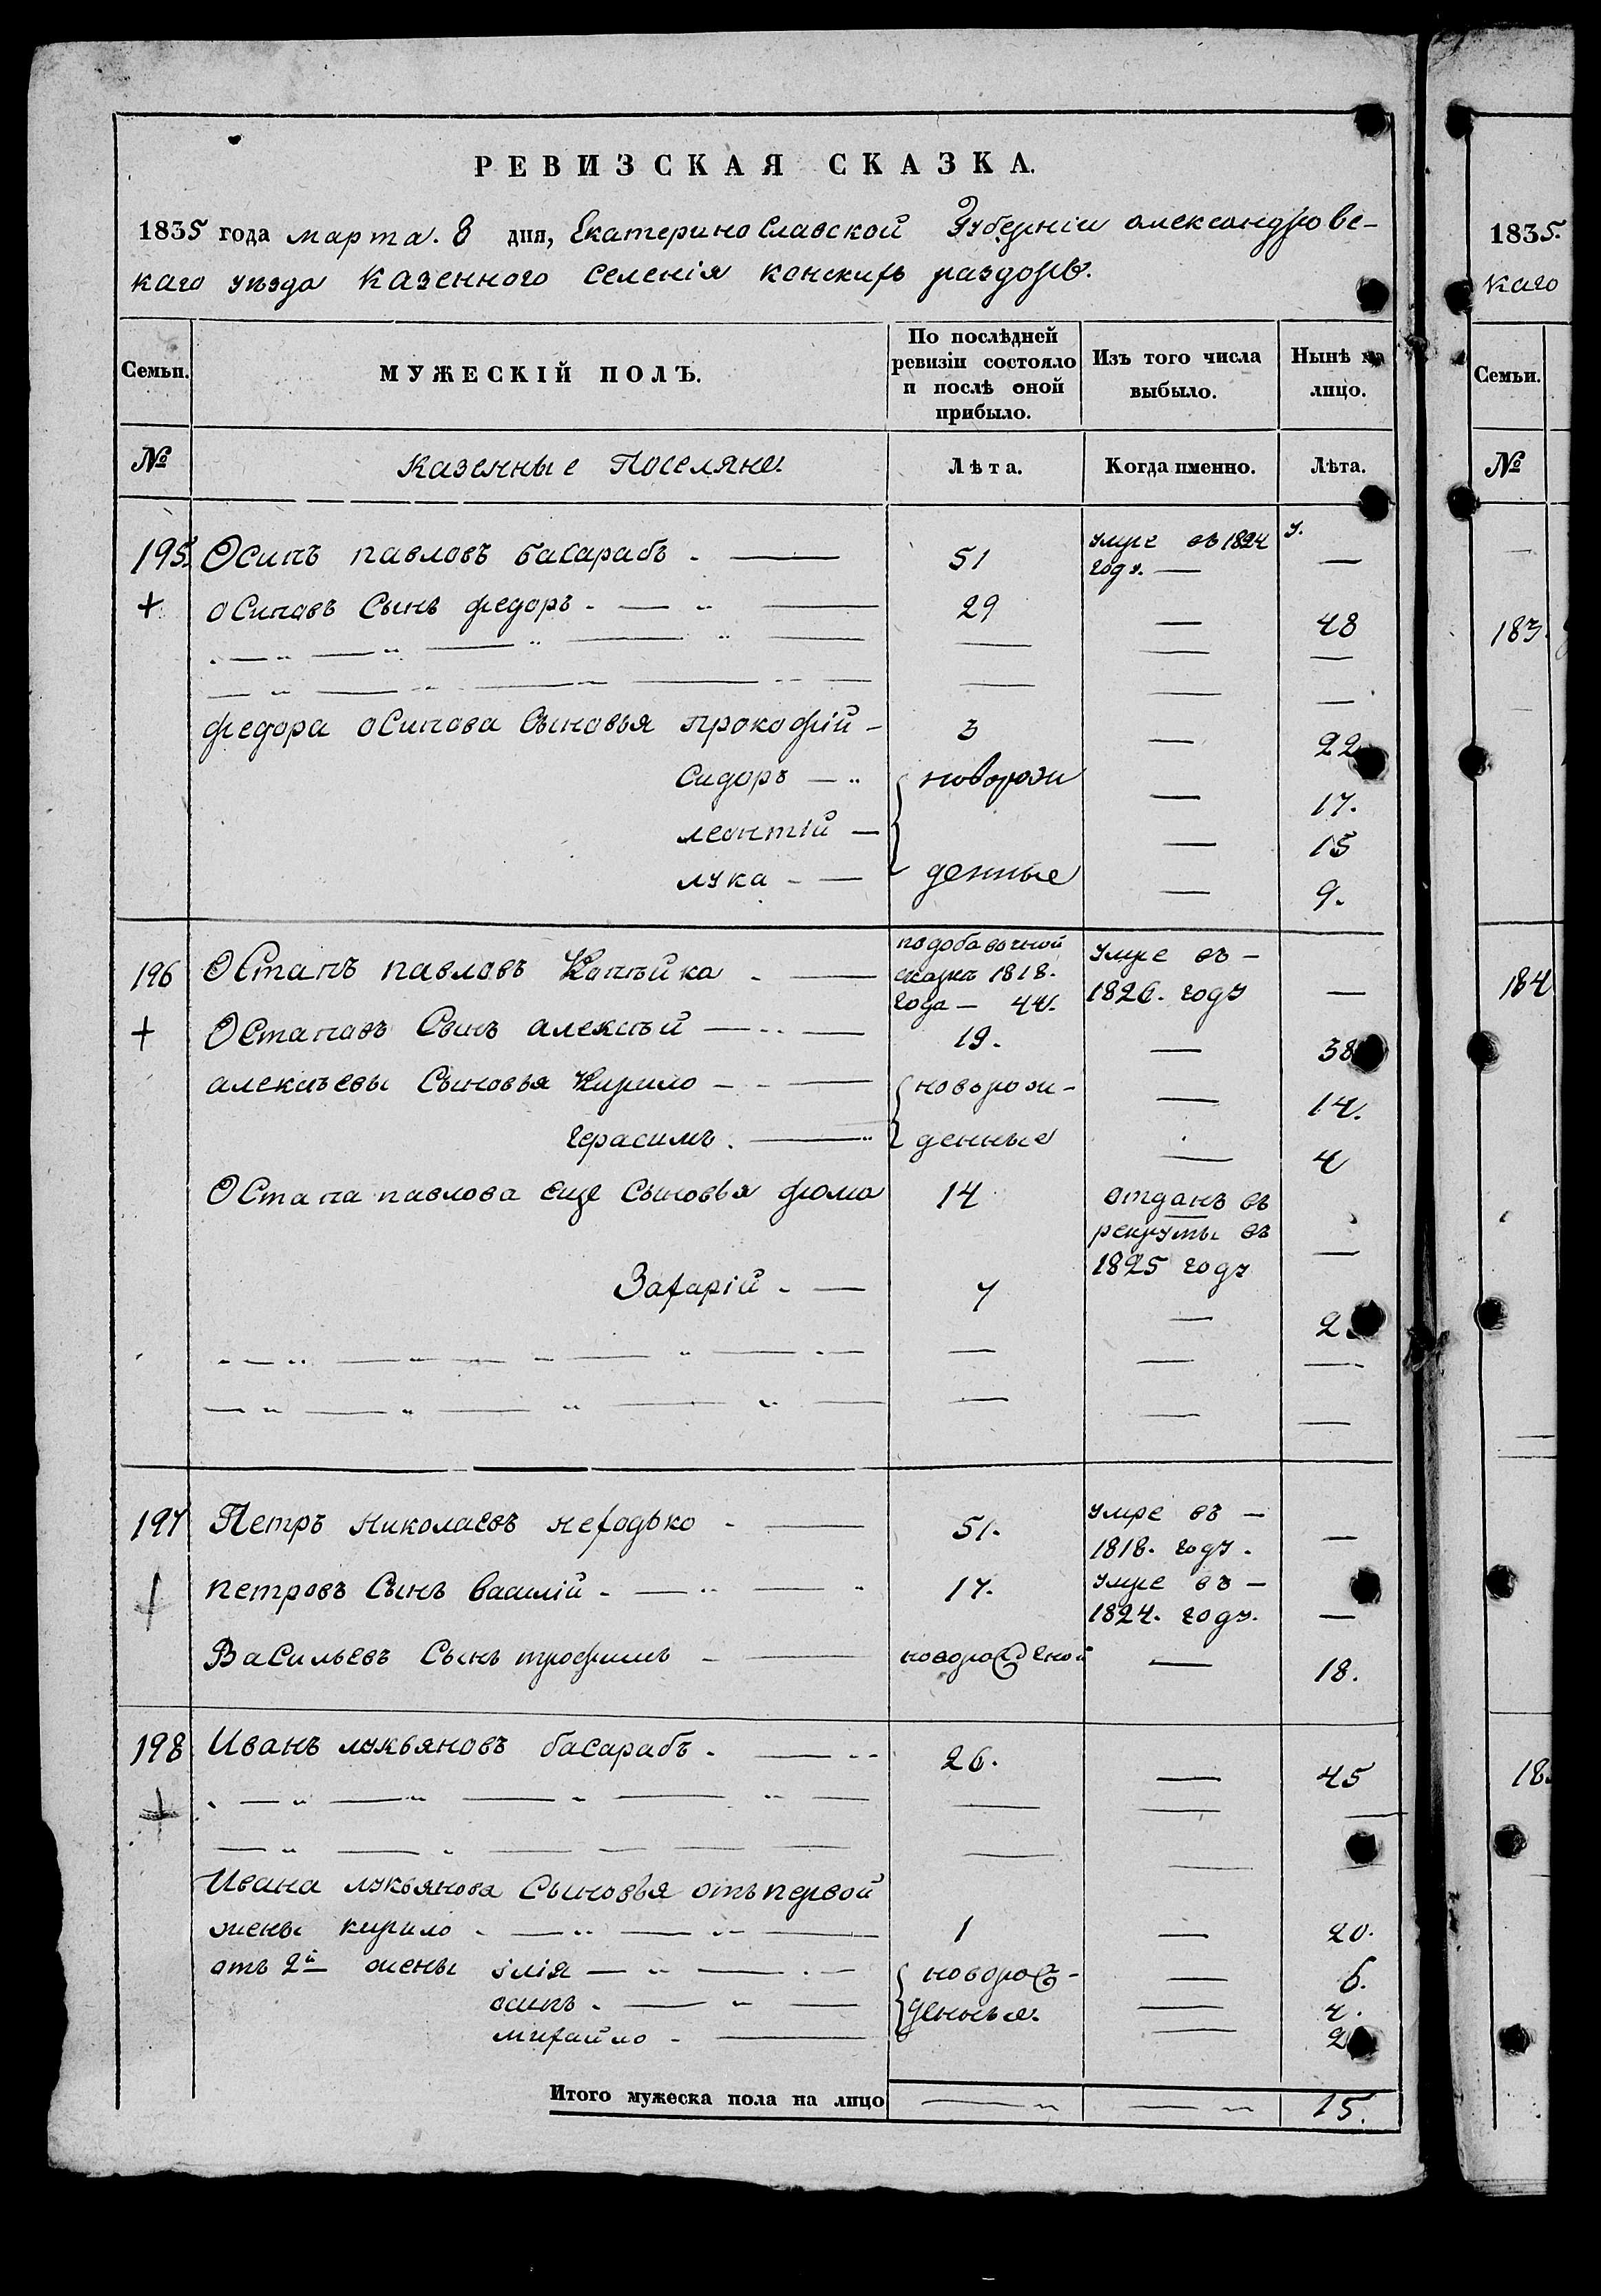 РЕВИЗСКАЯ СКАЗКА.
1835 года марта. 8 дня, Екатеринославской Губерніи александровс-
каго уезда казенного селенія конскихъ раздоръ.
Семьи. МУЖЕСКІЙ ПОЛЪ. По послѣдней ревизіи состояло и послѣ оной прибыло. Изъ того числа выбыло. Нынѣ на лицо.
№ Казенные Поселяне. Лѣта. Когда именно. Лѣта.
195. Осипъ павловъ басарабъ. — 51 умре въ 1824 году. —
+ осиповъ Сынъ федоръ. — 29 — 48
федора осипова Сыновья прокофій - 3 — 22
Сидоръ — новорож — 17.
леонтій — — 15
лука - — денные — 9.
196 Остапъ павловъ Копѣйка - — подобавочной сказке 1818. года — 44. умре въ — 1826. году —
+ Остаповъ Сынъ алексѣй — 19. — 38
алексѣевы Сыновья Кирило - — новорож- — 14.
герасимъ. — денные — 4
Остапа павлова еще Сыновья фома 14 отданъ въ рекруты въ 1825 году —
Захарій - — 7 — 2
197 Петръ николаевъ неходько - — 51. умре въ — 1818. году. —
петровъ Сынъ василій - — 17. умре въ — 1824. году. —
Васильевъ Сынъ трофимъ - — новорожденой — 18.
198 Иванъ лукьяновъ басарабъ. — 26. — 45
+
Ивана лукьянова Сыновья отъ первой
жены кирило - — 1 — 20.
отъ 2й жены ілія — новорож- — 6.
осипъ. — денные. — 4.
михайло - — — 2
Итого мужеска пола на лицо — — 15.
1835.
каго
Семьи.
№
183.
184
18